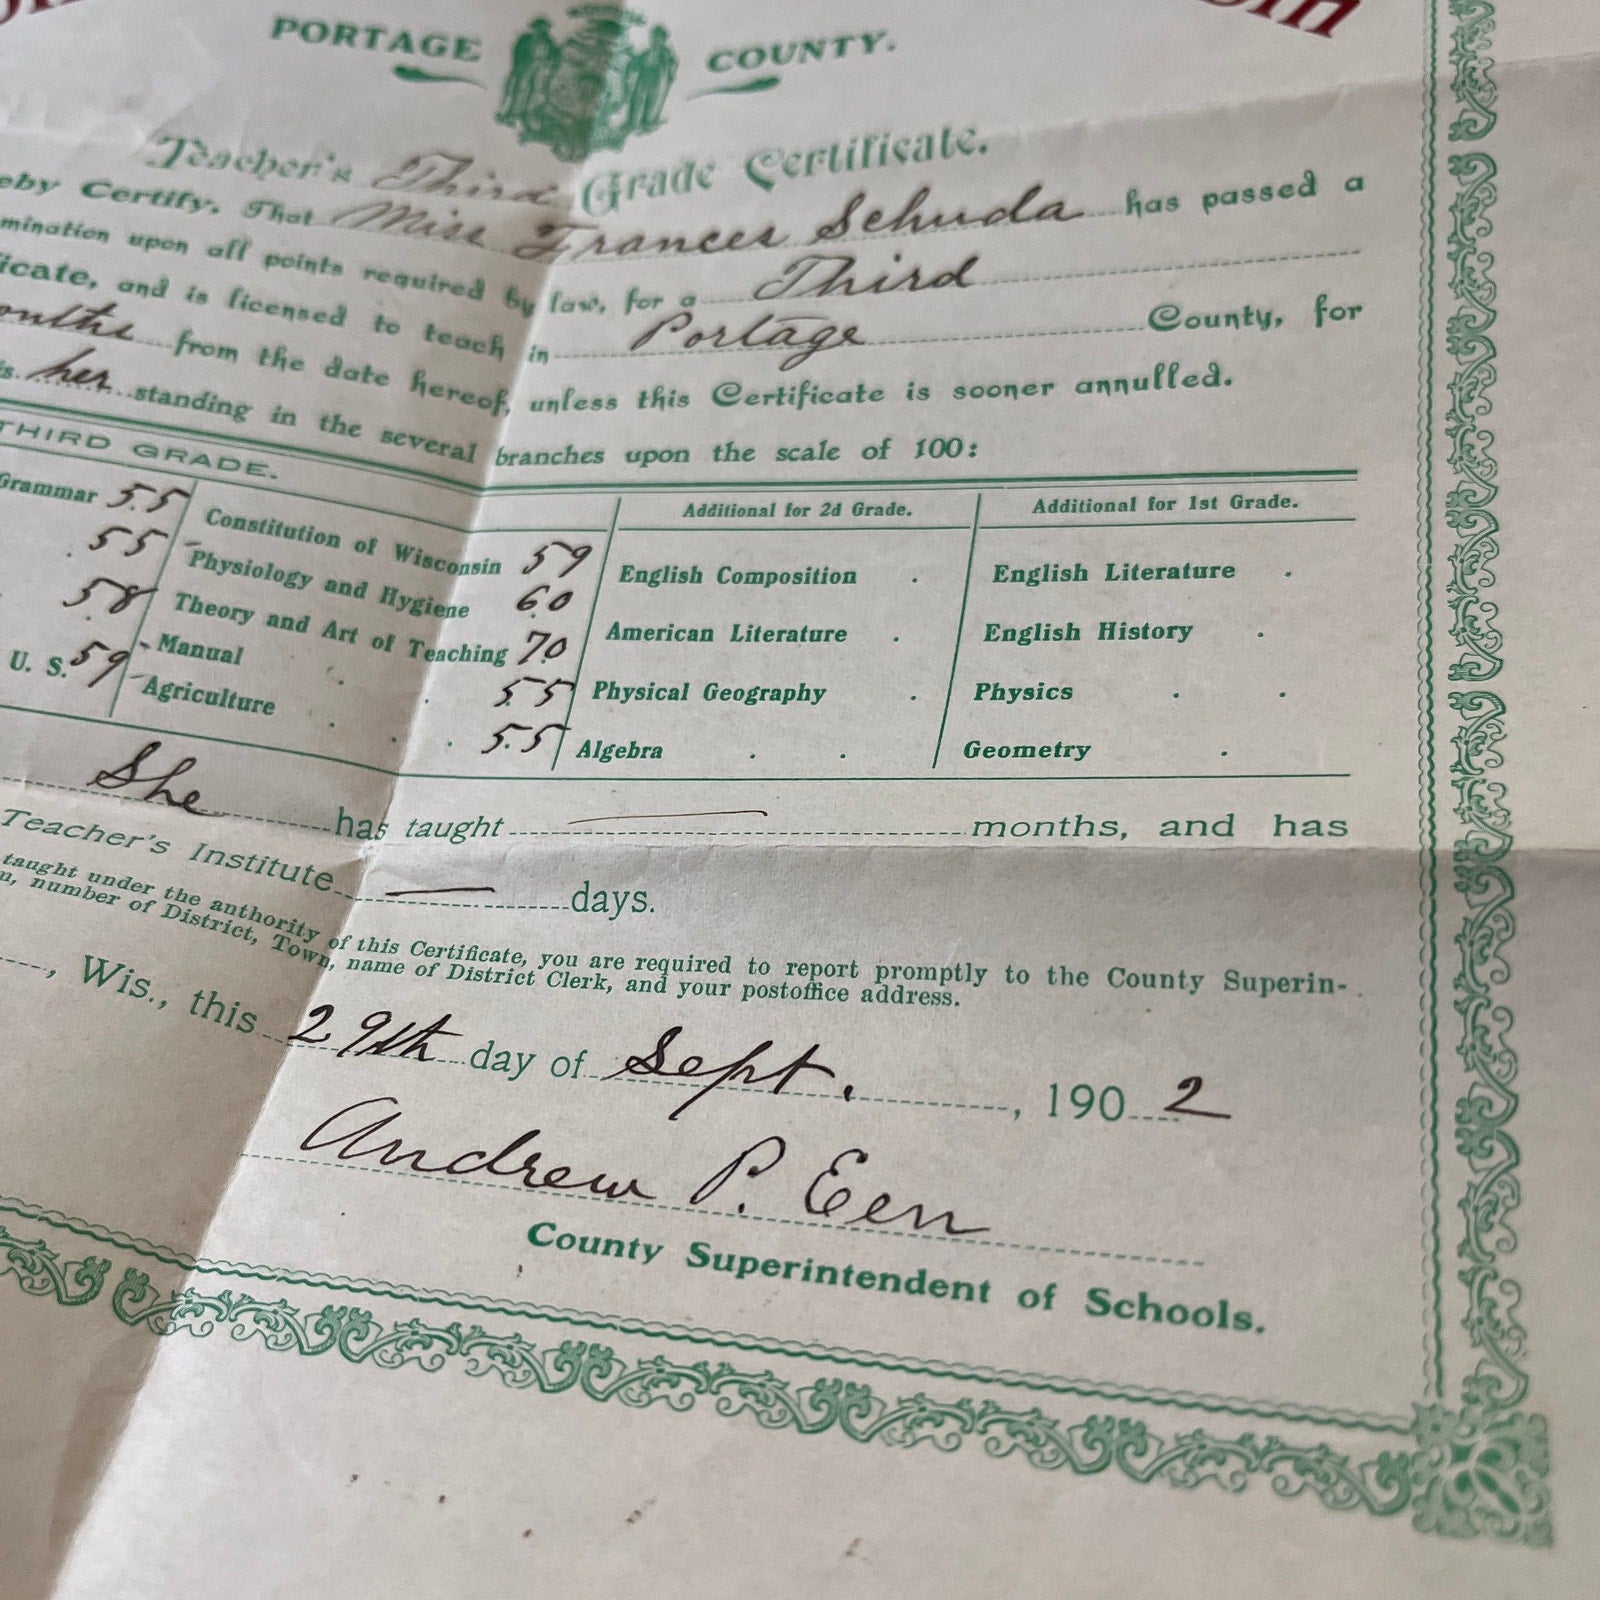 PORTAGE COUNTY.
Teacher's Third Grade Certificate.
Certify, That Miss Frances Schuda has passed a
upon all points required by law, for a Third
and is licensed to teach in Portage County, for
from the date hereof, unless this Certificate is sooner annulled.
her standing in the several branches upon the scale of 100:
THIRD GRADE. Additional for 2d Grade. Additional for 1st Grade.
Grammar 55 Constitution of Wisconsin 59 English Composition . English Literature .
55 Physiology and Hygiene 60 American Literature . English History .
58 Theory and Art of Teaching 70 Physical Geography . Physics . .
U. S. 59 Manual . . 55 Algebra . . Geometry .
Agriculture . . 55
She has taught — months, and has
Teacher's Institute — days.
taught under the authority of this Certificate, you are required to report promptly to the County Superin-
number of District, Town, name of District Clerk, and your postoffice address.
, Wis., this 29th day of Sept. , 1902
Andrew P. Een
County Superintendent of Schools.